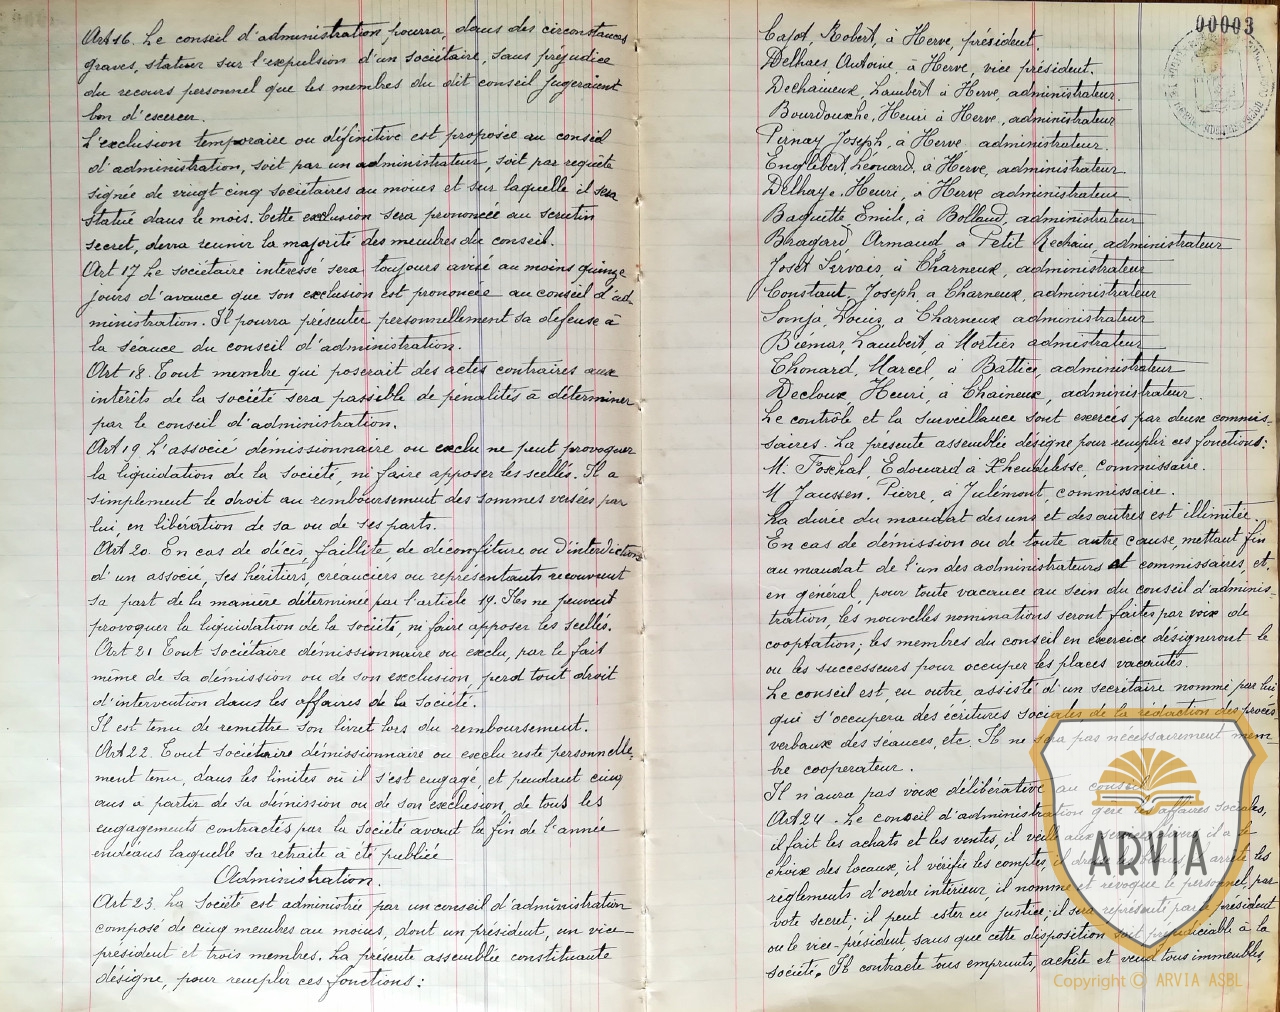 Art 16. Le conseil d'administration pourra, dans des circonstances
graves, statuer sur l'expulsion d'un sociétaire, sans préjudice
du recours personnel que les membres du dit conseil jugeraient
bon d'exercer.
L'exclusion temporaire ou définitive est proposée au conseil
d'administration, soit par un administrateur, soit par requête
signée de vingt cinq sociétaires au moins et sur laquelle il sera
statué dans le mois. Cette exclusion sera prononcée au scrutin
secret, devra réunir la majorité des membres du conseil.
Art 17 Le sociétaire intéressé sera toujours avisé au moins quinze
jours d'avance que son exclusion est prononcée au conseil d'ad
ministration. Il pourra présenter personnellement sa défense à
la séance du conseil d'administration.
Art 18. Tout membre qui poserait des actes contraires aux
intérêts de la société sera passible de pénalités à déterminer
par le conseil d'administration.
Art 19 L'associé démissionnaire ou exclu ne peut provoquer
la liquidation de la société, ni faire apposer les scellés. Il a
simplement le droit au remboursement des sommes versées par
lui, en libération de sa ou de ses parts.
Art 20. En cas de décès, faillite de déconfiture ou d'interdiction
d'un associé, ses héritiers, créanciers ou représentants recouvrent
sa part de la manière déterminée par l'article 19. Ils ne peuvent
provoquer la liquidation de la société, ni faire apposer les scellés.
Art 21 Tout sociétaire démissionnaire ou exclu, par le fait
même de sa démission ou de son exclusion, perd tout droit
d'intervention dans les affaires de la Société.
Il est tenu de remettre son livret lors du remboursement.
Art 22. Tout sociétaire démissionnaire ou exclu reste personnelle-
ment tenu, dans les limites où il s'est engagé, et pendant cinq
ans à partir de sa démission ou de son exclusion, de tous les
engagements contractés par la Société avant la fin de l'année
endéans laquelle sa retraite à été publiée
Administration.
Art 23. La Société est administrée par un conseil d'administration
composé de cinq membres au moins, dont un président, un vice-
président et trois membres. La présente assemblée constituante
désigne, pour remplir ces fonctions:
00003
Robert, à Herve, président.
Delhaes, Antoine, à Herve, vice président.
Dechaineux, Lambert à Herve, administrateur.
Bourdouxhe, Henri à Herve, administrateur
Pirnay Joseph, à Herve, administrateur.
Englebert, Léonard, à Herve, administrateur
Delhaye. Henri, à Herve administrateur.
Baguette Emile, à Bolland, administrateur
Bragard, Armand, à Petit Rechain, administrateur
Servais, à Charneux, administrateur
Constant, Joseph, à Charneux, administrateur
Louis, à Charneux administrateur
Lambert, à Mortier admistrateur
Thonard, Marcel, à Battice, administrateur
Decloux, Henri, à Chaineux, administrateur.
Le contrôle et la surveillance sont exercés par deux commis-
saires. La présente assemblée désigne pour remplir ces fonctions:
M. Edouard à commissaire.
M Janssen. Pierre, à Julémont, commissaire.
La durée du mandat des uns et des autres est illimitée.
En cas de démission ou de toute autre cause, mettant fin
au mandat de l'un des administrateurs et commissaires, et,
en général, pour toute vacance au sein du conseil d'adminis-
tration, les nouvelles nominations seront faites par voix de
cooptation; les membres du conseil en exercice désigneront le
ou les successeurs pour occuper les places vacantes.
Le conseil est, en outre, assisté d'un secrétaire nommé par lui
qui s'occupera des écritures sociales de la rédaction des procès
verbaux des séances, etc. Il ne sera pas nécessairement mem-
bre coopérateur.
Il n'aura pas voix délibérative au conseil
Art 24. Le conseil d'administration gère les affaires sociales,
il fait les achats et les ventes, il veille aux il a le
choix des locaux, il vérifie les comptes, il dresse les bilans, il arrête les
règlements d'ordre intérieur, il nomme et révoque le personnel, par
vote secret; il peut ester en justice; il sera représenté par le président
ou le vice-président sans que cette disposition soit préjudiciable à la
société. Il contracte tous emprunts, achète et vend tous immeubles,
ARVIA
Copyright © ARVIA ASBL